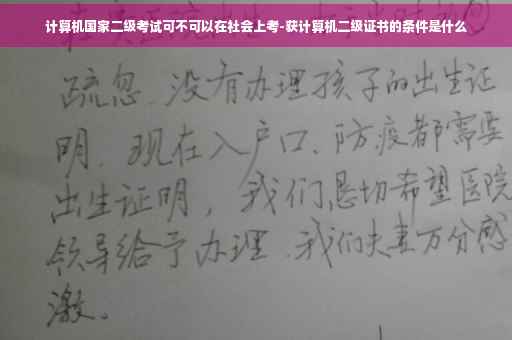 计算机国家二级考试可不可以在社会上考-获计算机二级证书的条件是什么
疏忽、没有办理孩子的出生证
明、现在入户口、防疫都需要
出生证明，我们恳切希望医院
领导给予办理、我们夫妻万分感
激。